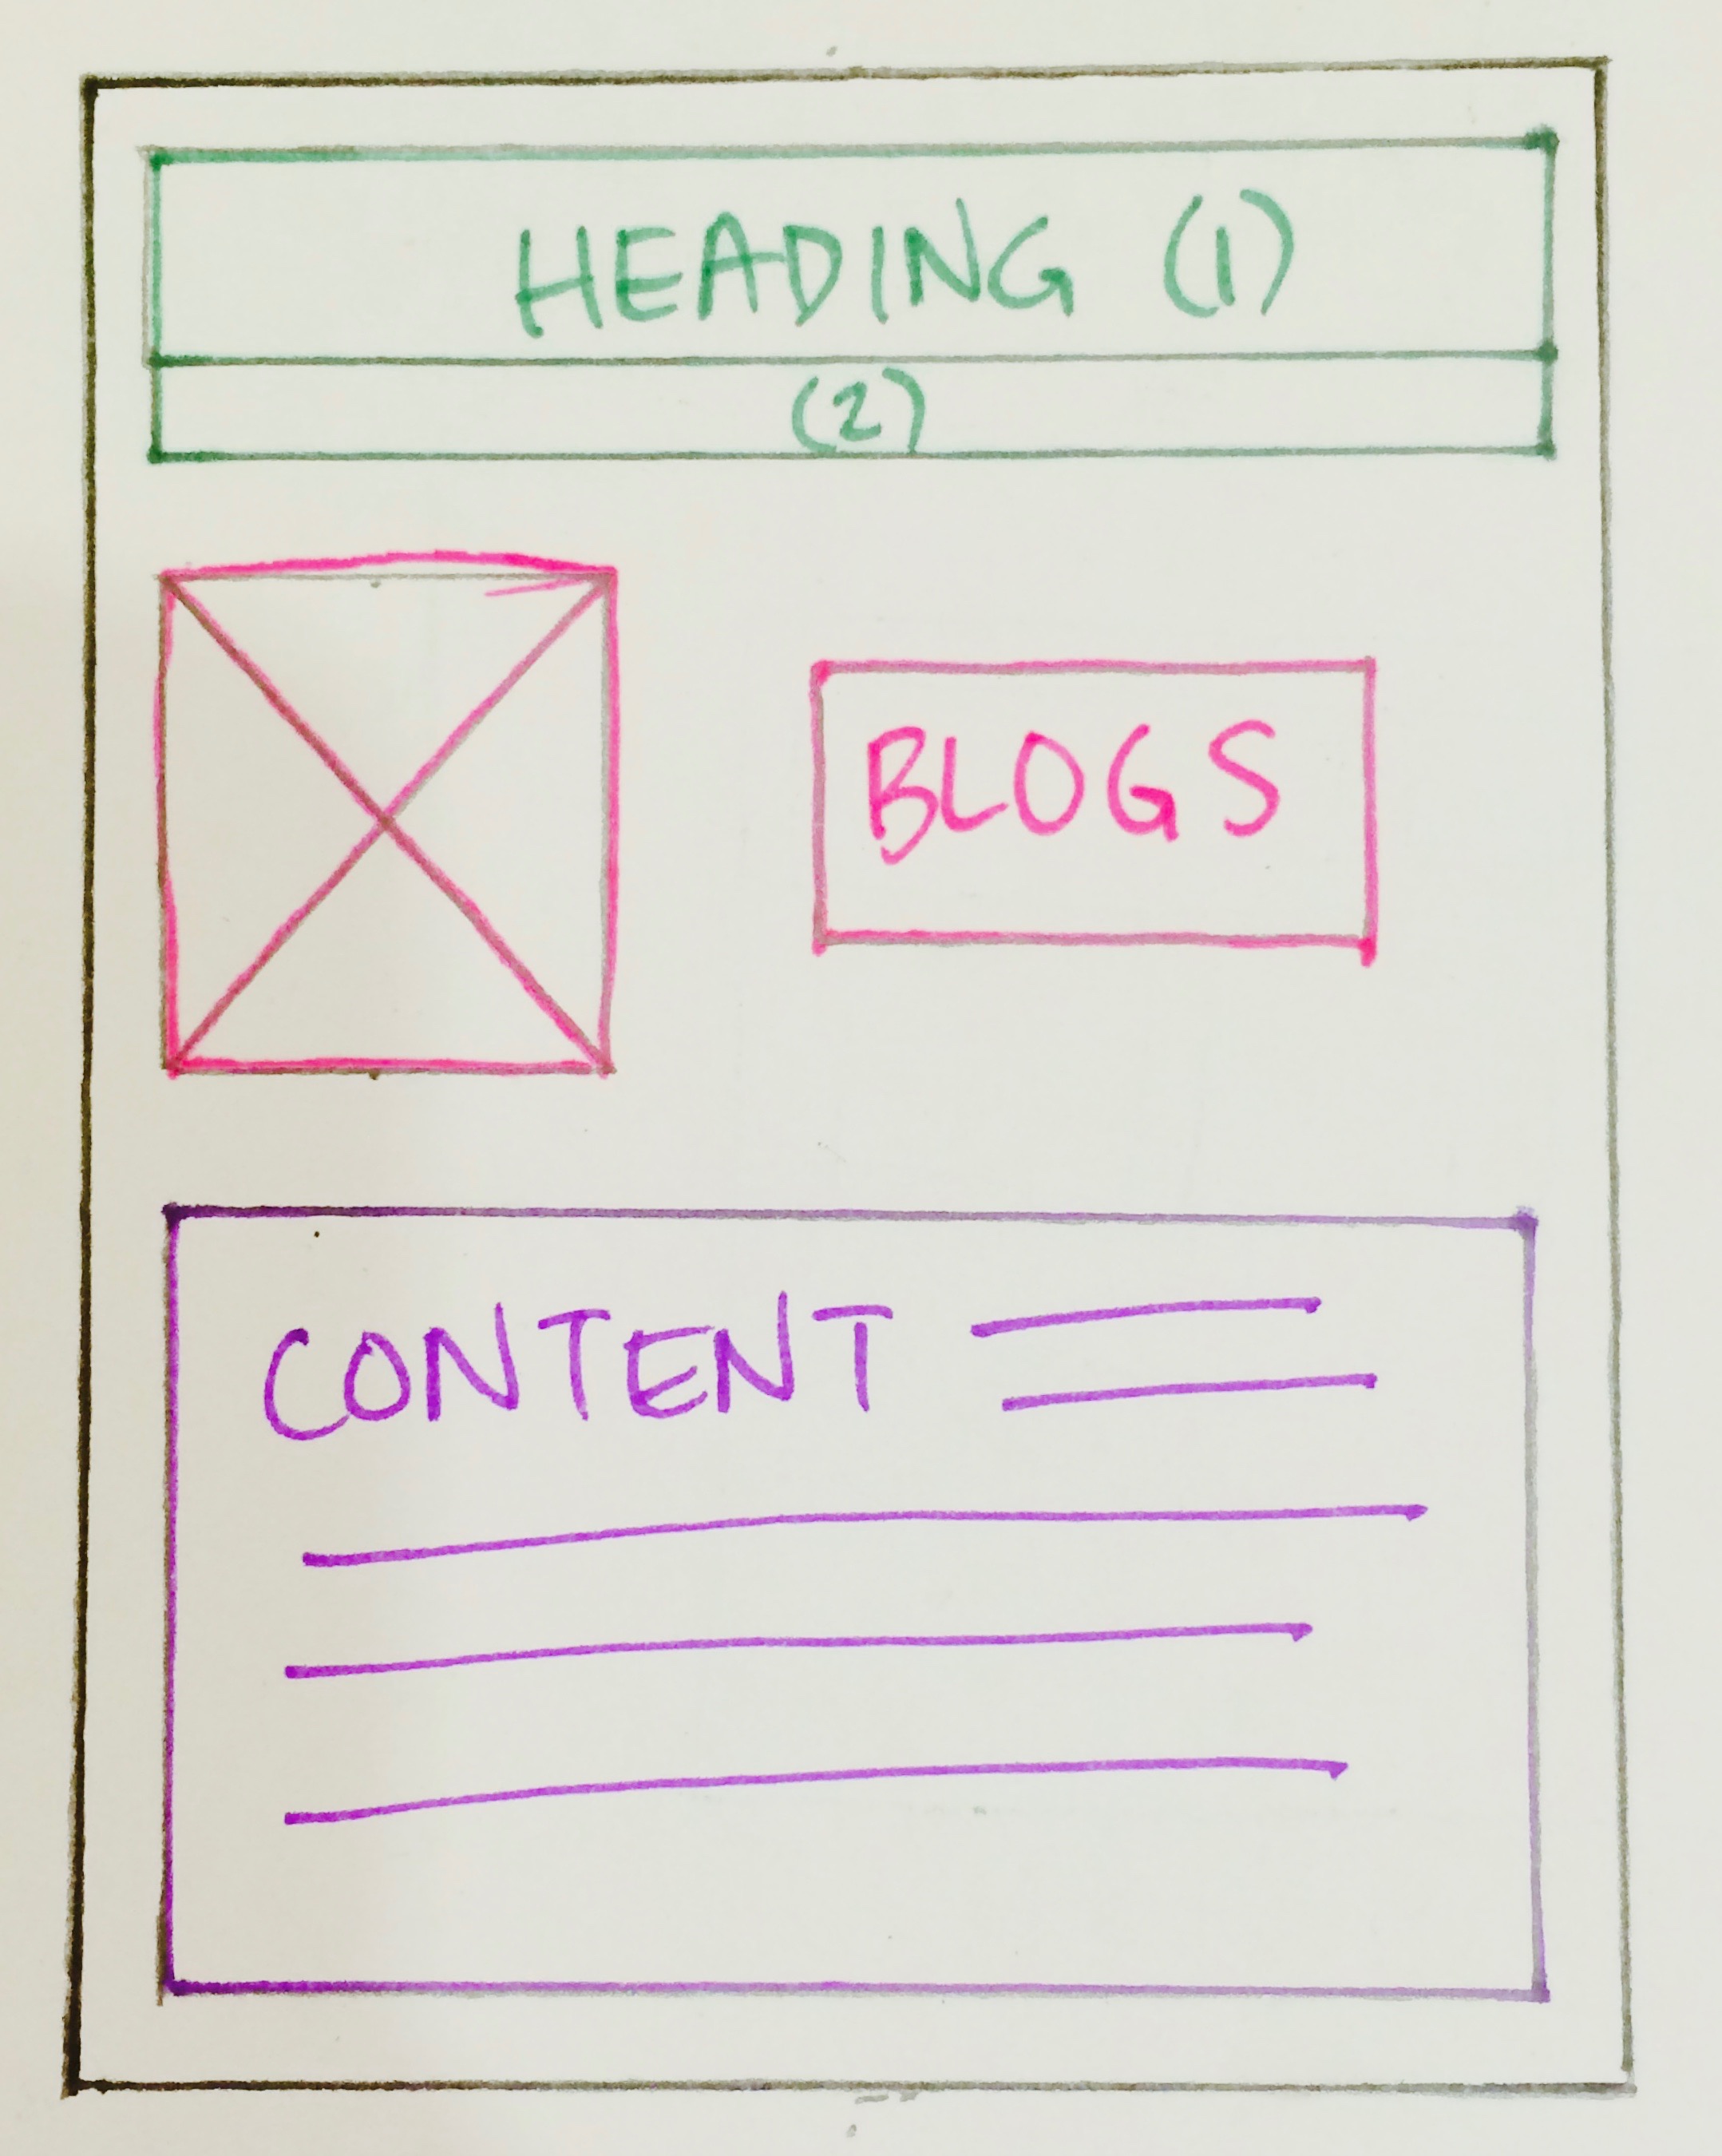 HEADING (1)
(2)
BLOGS
CONTENT